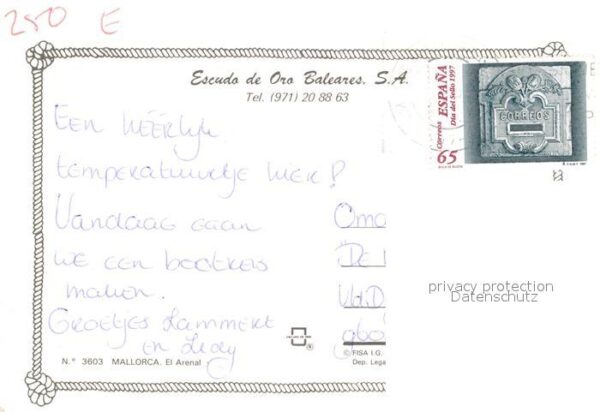 250 E
Escudo de Oro Baleares. S.A.
Tel. (971) 20 88 63
Correos ESPAÑA Día del Sello 1997
65
CORREOS
Een HEERLIJK
temperatuurtje HIER!
Vandaag gaan
we een bootreis
maken.
Groetjes Lammert
en Lidy
Oma
DE
v.d.D
N.º 3603 MALLORCA. El Arenal
© FISA I.G.
Dep. Lega
privacy protection
Datenschutz